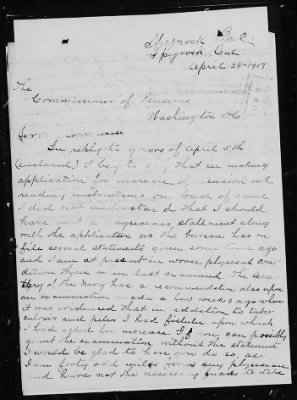 Spyrock Cal.
Spyrock, Cal
April 28-1907
The
Commissioner of Pensions
Washington DC.
Sir:
In reply to yours of April 5th
(enclosed) I beg to say that in making
application for increase of pension not
reading instructions on back of same
I did not understand that I should
have sent a physicians statement along
with the application as the bureau has on
file several statements given some time ago
and I am at present in worse physical con
dition than when last examined. The Secre
tary of the Navy has a recommendation also upon
an examination made a few weeks ago when
it was evidenced that in addition to
and I had upon which
I had asked for increase. If you can possibly
grant the examination without the statement
I would be glad to have you do so, as
I am forty odd miles from any physician
and have not the necessary funds to